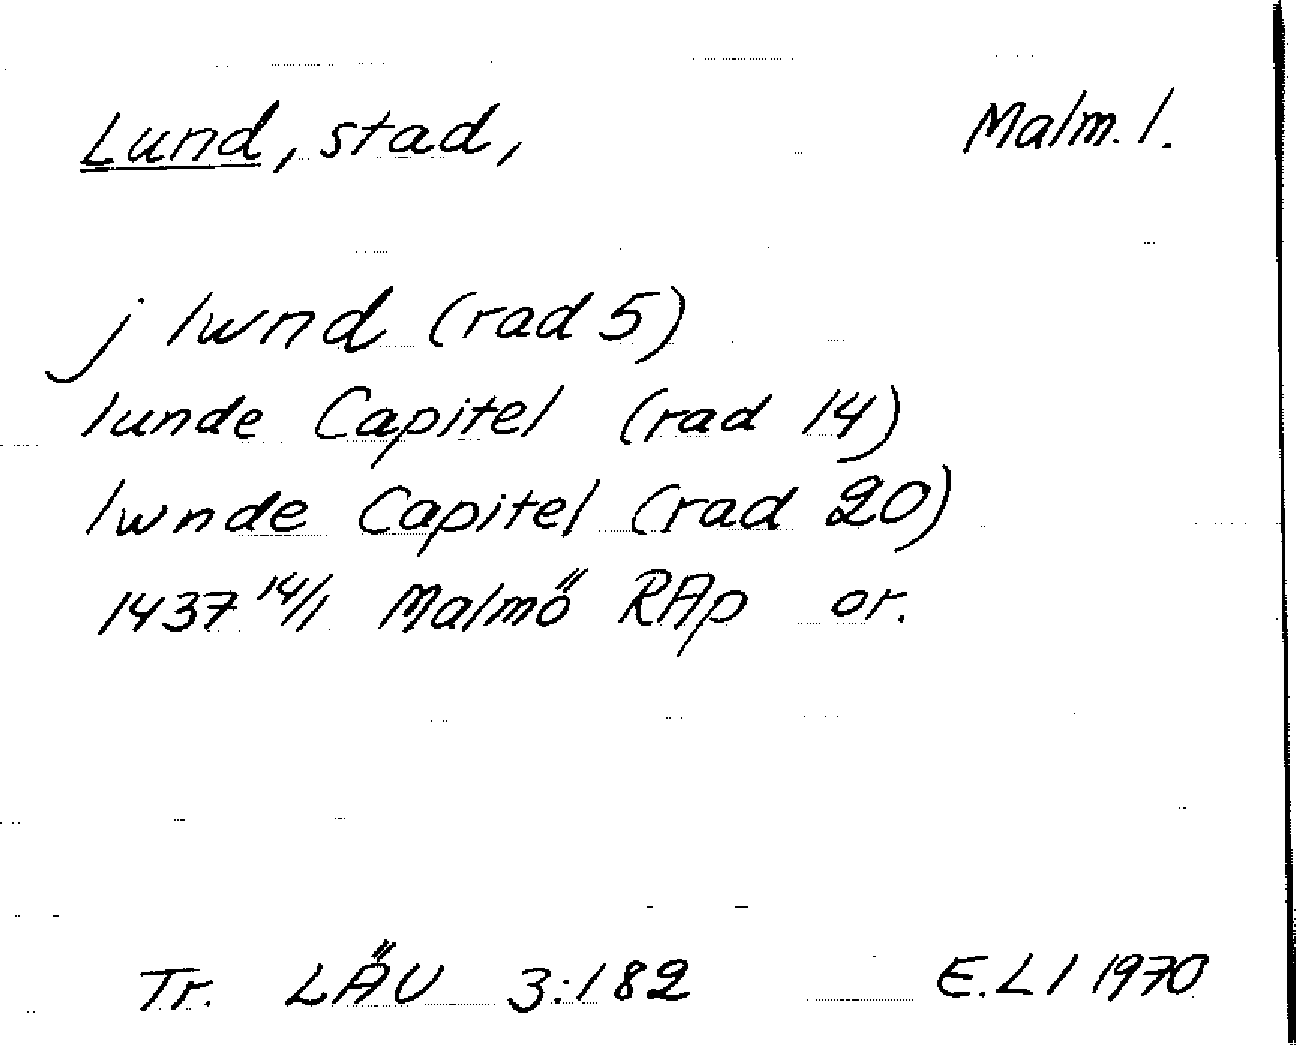 Lund, stad, Malm. l.
j lwnd (rad 5)
lunde Capitel (rad 14)
lwnde Capitel (rad 20)
1437 14/1 Malmö RAp or.
Tr. LÄU 3:182 E.Ll 1970